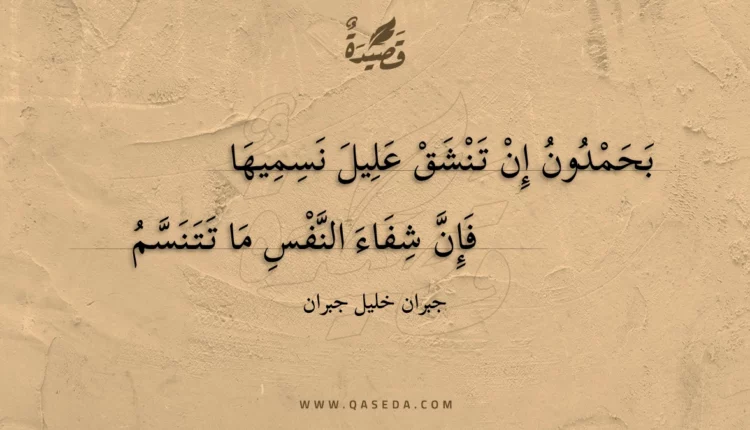 قَصِيدَةٌ
بَحَمْدُونُ إِنْ تَنْشَقْ عَلِيلَ نَسِمِيهَا
فَإِنَّ شِفَاءَ النَّفْسِ مَا تَتَنَسَّمُ
جبران خليل جبران
WWW.QASEDA.COM